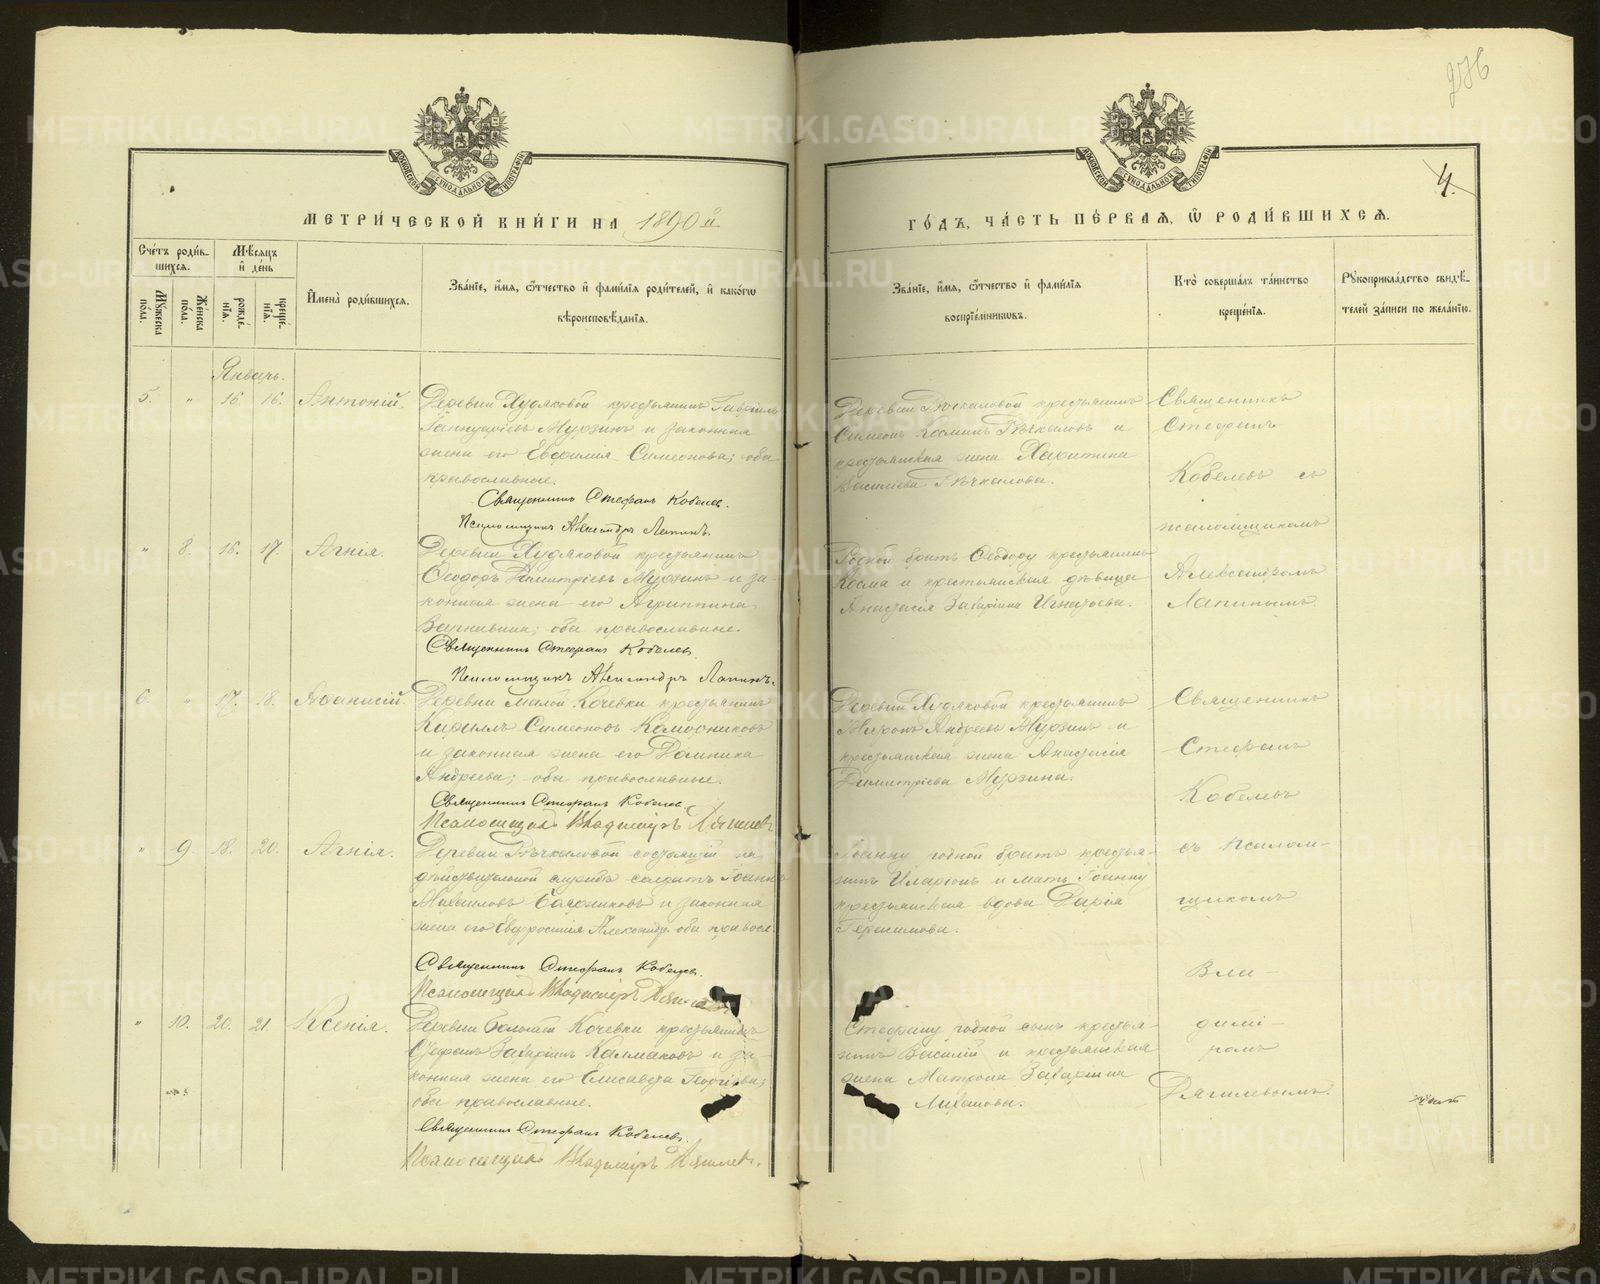 276
4.
МЕТРИ́ЧЕСКОЙ КНИ́ГИ НА 1890й
ГО́ДЪ, ЧА́СТЬ ПЕ́РВАЯ, Ѿ РОДИ́ВШИХСЯ.
Сче́тъ роди́вшихся.
Мѣ́сяцъ и҆ де́нь
Мꙋ́жеска по́ла.
Же́нска по́ла.
рожде́нїя.
креще́нїя.
И҆мена̀ роди́вшихся.
Зва́нїе, и҆́мя, ѻ҆́тчество и҆ фами́лїя роди́телей, и҆ како́гѡ
вѣроисповѣ́данїя.
Зва́нїе, и҆́мя, ѻ҆́тчество и҆ фами́лїя
воспрїе́мникѡвъ.
Кто̀ соверша́лъ та́инство
креще́нїя.
Рꙋкоприкла́дство свидѣ́-
телей за́писи по жела́нїю.
Январь.
5. " 16. 16. Антоній.
Деревни Худяковой крестьянинъ Гавріилъ
Іаннуаріевъ Мурзинъ и законная
жена его Евфимія Симеонова; оба
православные.
Священникъ Стефанъ Кобелев.
Псаломщикъ Александръ Лапинъ.
Деревни Рѣчкаловой крестьянинъ
Симеонъ Космин Рѣчкаловъ и
крестьянская жена Харитина
Васильева Рѣчкалова.
Священникъ
Стефанъ
Кобелевъ съ
псаломщикомъ
Александромъ
Лапинымъ.
" 8. 16. 17. Агнія.
Деревни Худяковой крестьянинъ
Ѳеодоръ Димитріевъ Мурзинъ и за-
конная жена его Агриппина
оба православные.
Священникъ Стефанъ Кобелев.
Псаломщикъ Александръ Лапинъ.
Родной братъ Ѳеодору крестьянинъ
Косма и крестьянская дѣвица
Анастасія Захаріина Игнатьева.
6. " 17. 18. Аѳанасій.
Деревни Малой Кочевки крестьянинъ
Кириллъ Симеоновъ
и законная жена его Домника
Андреева; оба православные.
Священникъ Стефанъ Кобелев.
Псаломщикъ Владиміръ Дягилевъ
Деревни Худяковой крестьянинъ
Миронъ Андреевъ Мурзинъ и
крестьянская жена Анастасія
Димитріева Мурзина.
Священникъ
Стефанъ
Кобелевъ
съ псалом-
щикомъ
Вла-
дими-
ромъ
Дягилевымъ.
" 9. 18. 20. Агнія.
Деревни Рѣчкаловой состоящій на
дѣйствительной службѣ солдатъ Іоаннъ
Михаиловъ и законная
жена его Евфросинія Александр. оба правосл.
Священникъ Стефанъ Кобелев.
Псаломщикъ Владиміръ
Іоанну родной братъ крестья-
нинъ Иларіонъ и мать Іоанну
крестьянская вдова Дарія
Герасимова.
" 10. 20. 21. Ксенія.
Деревни Большой Кочевки крестьянинъ
Стефанъ Захаріинъ Калмаковъ и за-
конная жена его Елисавета Георгіева;
оба православные.
Священникъ Стефанъ Кобелевъ.
Псаломщикъ Владиміръ Дягилев.
Стефану родной сынъ крестья-
нинъ Василій и крестьянская
жена Матрона Захаріина